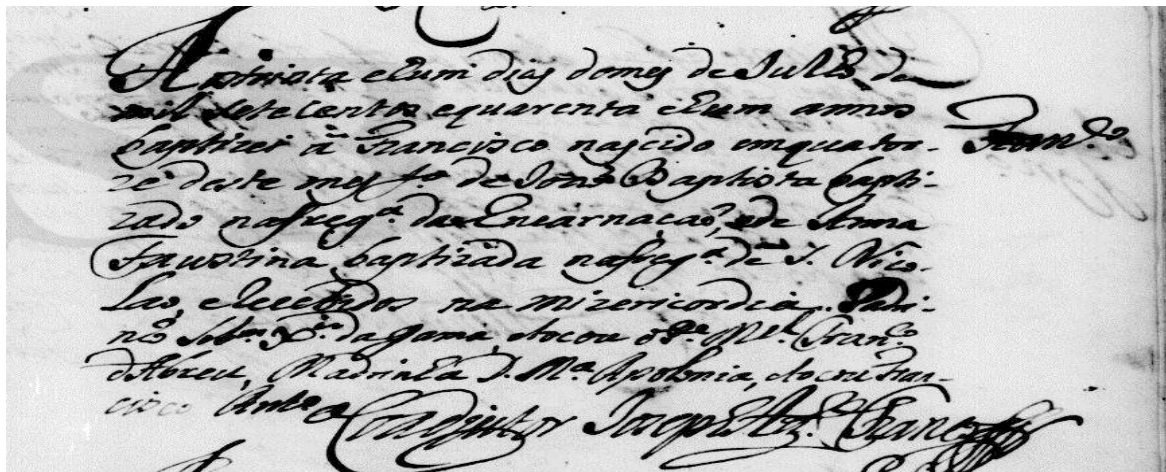 Aos trinta e hum dias do mes de Julho de
mil setecentos equarenta ehum annos
baptizei a Francisco nascido emquator-
ze deste mes fo. de Joze Baptista bapti-
zado nafregª. da Encarnaçaõ, ede Anna
Faustina baptizada nafregª. de S. Nico-
lao, erecebidos na mizericordia. Padri-
nho da Gama, etocou o Pe. Mel. Franco.
d'Abreu, Madrinha D. Mª. Apolonia, etocou Fran-
cisco Anto.
O Coadjutor
Franco.